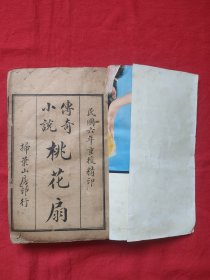 民國六年重校精印
傳奇小說
桃花扇
掃葉山房印行